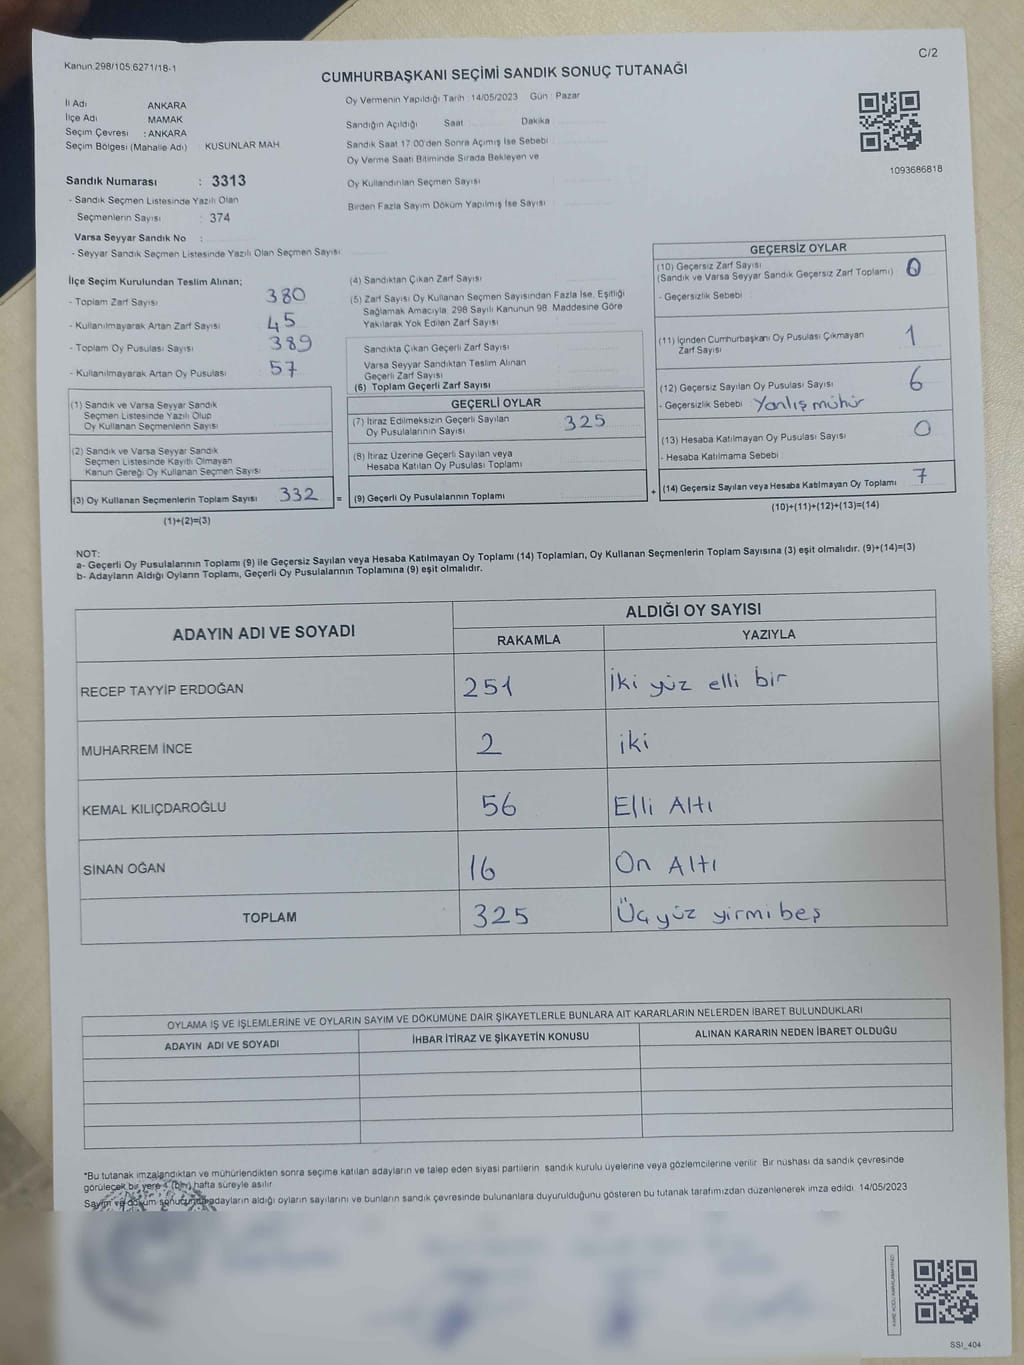 Kanun 298/105 6271/18-1
C/2
CUMHURBAŞKANI SEÇİMİ SANDIK SONUÇ TUTANAĞI
İl Adı ANKARA
İlçe Adı MAMAK
Seçim Çevresi : ANKARA
Seçim Bölgesi (Mahalle Adı) : KUSUNLAR MAH
Oy Vermenin Yapıldığı Tarih : 14/05/2023 Gün : Pazar
Sandığın Açıldığı Saat Dakika
Sandık Saat 17 00'den Sonra Açımış İse Sebebi
Oy Verme Saati Bitiminde Sırada Bekleyen ve
Oy Kullandırılan Seçmen Sayısı
Birden Fazla Sayım Döküm Yapılmış İse Sayısı
1093686818
Sandık Numarası : 3313
- Sandık Seçmen Listesinde Yazılı Olan
Seçmenlerin Sayısı : 374
Varsa Seyyar Sandık No :
- Seyyar Sandık Seçmen Listesinde Yazılı Olan Seçmen Sayısı
İlçe Seçim Kurulundan Teslim Alınan;
- Toplam Zarf Sayısı 380
- Kullanılmayarak Artan Zarf Sayısı 45
- Toplam Oy Pusulası Sayısı 389
- Kullanılmayarak Artan Oy Pusulası 57
(1) Sandık ve Varsa Seyyar Sandık
Seçmen Listesinde Yazılı Olup
Oy Kullanan Seçmenlerin Sayısı
(2) Sandık ve Varsa Seyyar Sandık
Seçmen Listesinde Kayıtlı Olmayan
Kanun Gereği Oy Kullanan Seçmen Sayısı
(3) Oy Kullanan Seçmenlerin Toplam Sayısı 332 =
(1)+(2)=(3)
(4) Sandıktan Çıkan Zarf Sayısı
(5) Zarf Sayısı Oy Kullanan Seçmen Sayısından Fazla İse, Eşitliği
Sağlamak Amacıyla, 298 Sayılı Kanunun 98. Maddesine Göre
Yakılarak Yok Edilen Zarf Sayısı
Sandıkta Çıkan Geçerli Zarf Sayısı
Varsa Seyyar Sandıktan Teslim Alınan
Geçerli Zarf Sayısı
(6) Toplam Geçerli Zarf Sayısı
GEÇERLİ OYLAR
(7) İtiraz Edilmeksizin Geçerli Sayılan
Oy Pusulalarının Sayısı 325
(8) İtiraz Üzerine Geçerli Sayılan veya
Hesaba Katılan Oy Pusulası Toplamı
(9) Geçerli Oy Pusulalarının Toplamı +
GEÇERSİZ OYLAR
(10) Geçersiz Zarf Sayısı
(Sandık ve Varsa Seyyar Sandık Geçersiz Zarf Toplamı) 0
- Geçersizlik Sebebi
(11) İçinden Cumhurbaşkanı Oy Pusulası Çıkmayan
Zarf Sayısı 1
(12) Geçersiz Sayılan Oy Pusulası Sayısı 6
- Geçersizlik Sebebi Yanlış mühür
(13) Hesaba Katılmayan Oy Pusulası Sayısı 0
- Hesaba Katılmama Sebebi
(14) Geçersiz Sayılan veya Hesaba Katılmayan Oy Toplamı 7
(10)+(11)+(12)+(13)=(14)
NOT:
a- Geçerli Oy Pusulalarının Toplamı (9) ile Geçersiz Sayılan veya Hesaba Katılmayan Oy Toplamı (14) Toplamları, Oy Kullanan Seçmenlerin Toplam Sayısına (3) eşit olmalıdır. (9)+(14)=(3)
b- Adayların Aldığı Oyların Toplamı, Geçerli Oy Pusulalarının Toplamına (9) eşit olmalıdır.
ADAYIN ADI VE SOYADI ALDIĞI OY SAYISI
RAKAMLA YAZIYLA
RECEP TAYYİP ERDOĞAN 251 İki yüz elli bir
MUHARREM İNCE 2 iki
KEMAL KILIÇDAROĞLU 56 Elli Altı
SİNAN OĞAN 16 On Altı
TOPLAM 325 Üç yüz yirmi beş
OYLAMA İŞ VE İŞLEMLERİNE VE OYLARIN SAYIM VE DÖKÜMÜNE DAİR ŞİKAYETLERLE BUNLARA AİT KARARLARIN NELERDEN İBARET BULUNDUKLARI
ADAYIN ADI VE SOYADI İHBAR İTİRAZ VE ŞİKAYETİN KONUSU ALINAN KARARIN NEDEN İBARET OLDUĞU
*Bu tutanak imzalandıktan ve mühürlendikten sonra seçime katılan adayların ve talep eden siyasi partilerin sandık kurulu üyelerine veya gözlemcilerine verilir Bir nüshası da sandık çevresinde
görülecek bir yere 1 (bir) hafta süreyle asılır
Sayım ve döküm sonucunda adayların aldığı oyların sayılarını ve bunların sandık çevresinde bulunanlara duyurulduğunu gösteren bu tutanak tarafımızdan düzenlenerek imza edildi 14/05/2023
SSİ_404